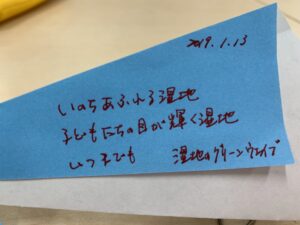 2019.1.13
いのちあふれる湿地
子どもたちの目が輝く湿地
いつまでも 湿地のグリーンウェイブ